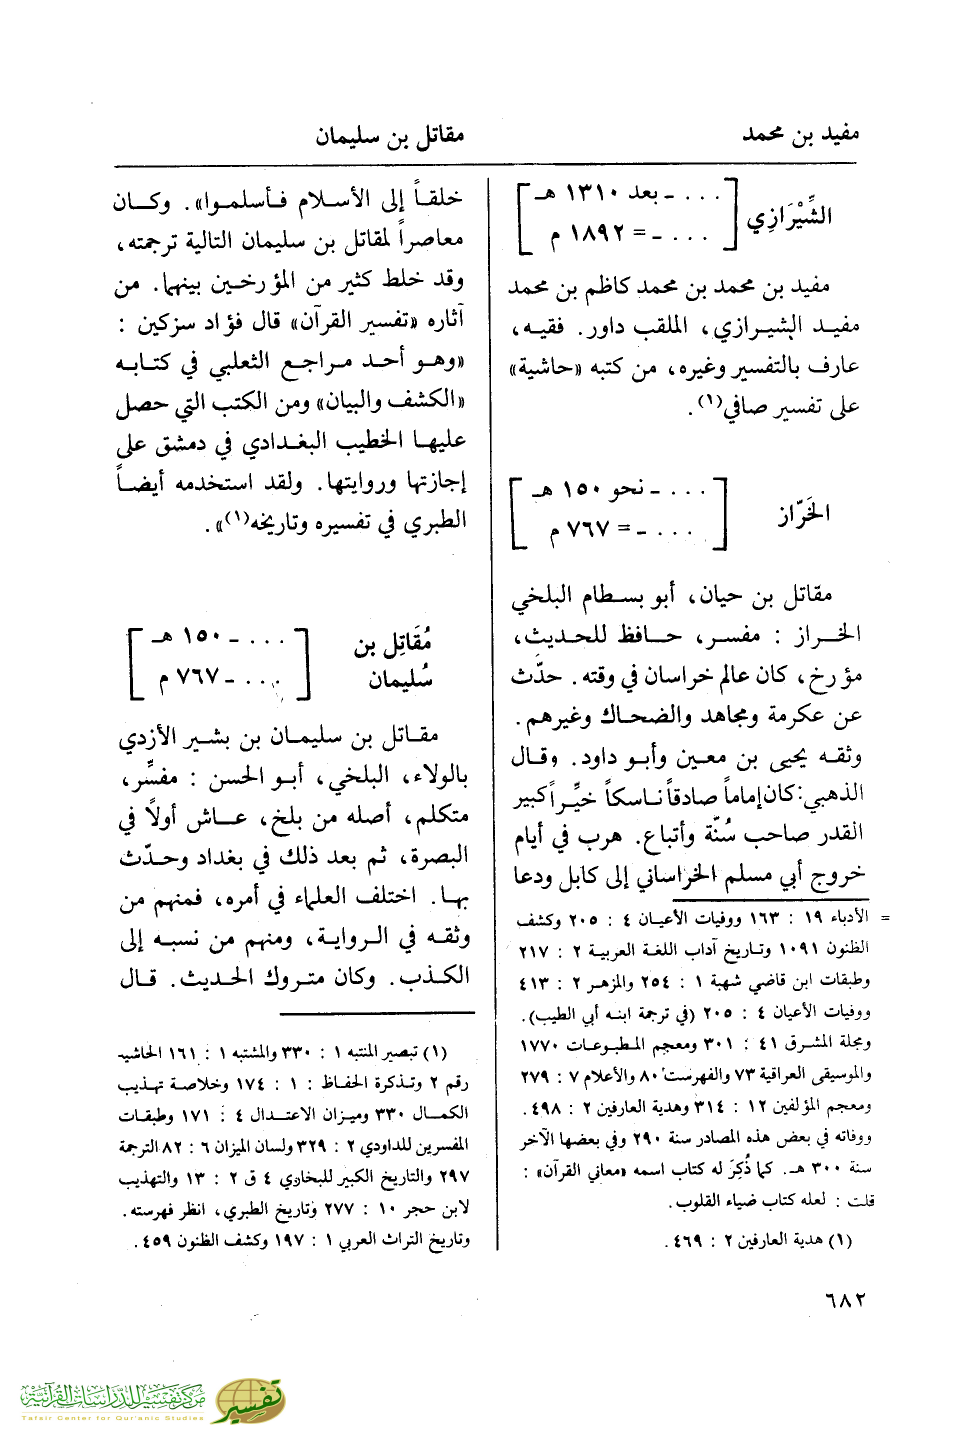 مفيد بن محمد
مقاتل بن سليمان
الشِّيْرَازِي
[ . . . ـ بعد ١٣١٠ هـ ]
[ . . . ـ = ١٨٩٢ م ]
مفيد بن محمد بن محمد كاظم بن محمد
مفيد الشيرازي، الملقب داور. فقيه،
عارف بالتفسير وغيره، من كتبه «حاشية»
على تفسير صافي(١).
الخَرّاز
[ . . . ـ نحو ١٥٠ هـ ]
[ . . . ـ = ٧٦٧ م ]
مقاتل بن حيان، أبو بسطام البلخي
الخراز : مفسر، حافظ للحديث،
مؤرخ، كان عالم خراسان في وقته. حدّث
عن عكرمة ومجاهد والضحاك وغيرهم.
وثقه يحيى بن معين وأبو داود. وقال
الذهبي: كان إماماً صادقاً ناسكاً خيِّراً كبير
القدر صاحب سُنّة وأتباع. هرب في أيام
خروج أبي مسلم الخراساني إلى كابل ودعا
= الأدباء ١٩ : ١٦٣ ووفيات الأعيان ٤ : ٢٠٥ وكشف
الظنون ١٠٩١ وتاريخ آداب اللغة العربية ٢ : ٢١٧
وطبقات ابن قاضي شهبة ١ : ٢٥٤ والمزهر ٢ : ٤١٣
ووفيات الأعيان ٤ : ٢٠٥ (في ترجمة ابنه أبي الطيب).
ومجلة المشرق ٤١ : ٣٠١ ومعجم المطبوعات ١٧٧٠
والموسيقى العراقية ٧٣ والفهرست ٨٠ والأعلام ٧ : ٢٧٩
ومعجم المؤلفين ١٢ : ٣١٤ وهدية العارفين ٢ : ٤٩٨.
ووفاته في بعض هذه المصادر سنة ٢٩٠ وفي بعضها الآخر
سنة ٣٠٠ هـ. كما ذُكِرَ له كتاب اسمه «معاني القرآن» :
قلت : لعله كتاب ضياء القلوب.
(١) هدية العارفين ٢ : ٤٦٩.
خلقاً إلى الأسلام فأسلموا». وكان
معاصراً لمقاتل بن سليمان التالية ترجمته،
وقد خلط كثير من المؤرخين بينهما. من
آثاره «تفسير القرآن» قال فؤاد سزكين :
«وهو أحد مراجع الثعلبي في كتابه
«الكشف والبيان» ومن الكتب التي حصل
عليها الخطيب البغدادي في دمشق على
إجازتها وروايتها. ولقد استخدمه أيضاً
الطبري في تفسيره وتاريخه(١)».
مُقَاتِل بن
سُليمان
[ . . . ـ ١٥٠ هـ ]
[ . . . ـ ٧٦٧ م ]
مقاتل بن سليمان بن بشير الأزدي
بالولاء، البلخي، أبو الحسن : مفسِّر،
متكلم، أصله من بلخ، عاش أولاً في
البصرة، ثم بعد ذلك في بغداد وحدّث
بها. اختلف العلماء في أمره، فمنهم من
وثقه في الرواية، ومنهم من نسبه إلى
الكذب. وكان متروك الحديث. قال
(١) تبصير المنتبه ١ : ٣٣٠ والمشتبه ١ : ١٦١ الحاشية
رقم ٢ وتذكرة الحفاظ : ١ : ١٧٤ وخلاصة تهذيب
الكمال ٣٣٠ وميزان الاعتدال ٤ : ١٧١ وطبقات
المفسرين للداودي ٢ : ٣٢٩ ولسان الميزان ٦ : ٨٢ الترجمة
٢٩٧ والتاريخ الكبير للبخاري ٤ ق ٢ : ١٣ والتهذيب
لابن حجر ١٠ : ٢٧٧ وتاريخ الطبري، انظر فهرسته.
وتاريخ التراث العربي ١ : ١٩٧ وكشف الظنون ٤٥٩.
٦٨٢
مركز تفسير للدراسات القرآنية
Tafsir Center for Qur'anic Studies
تفسير